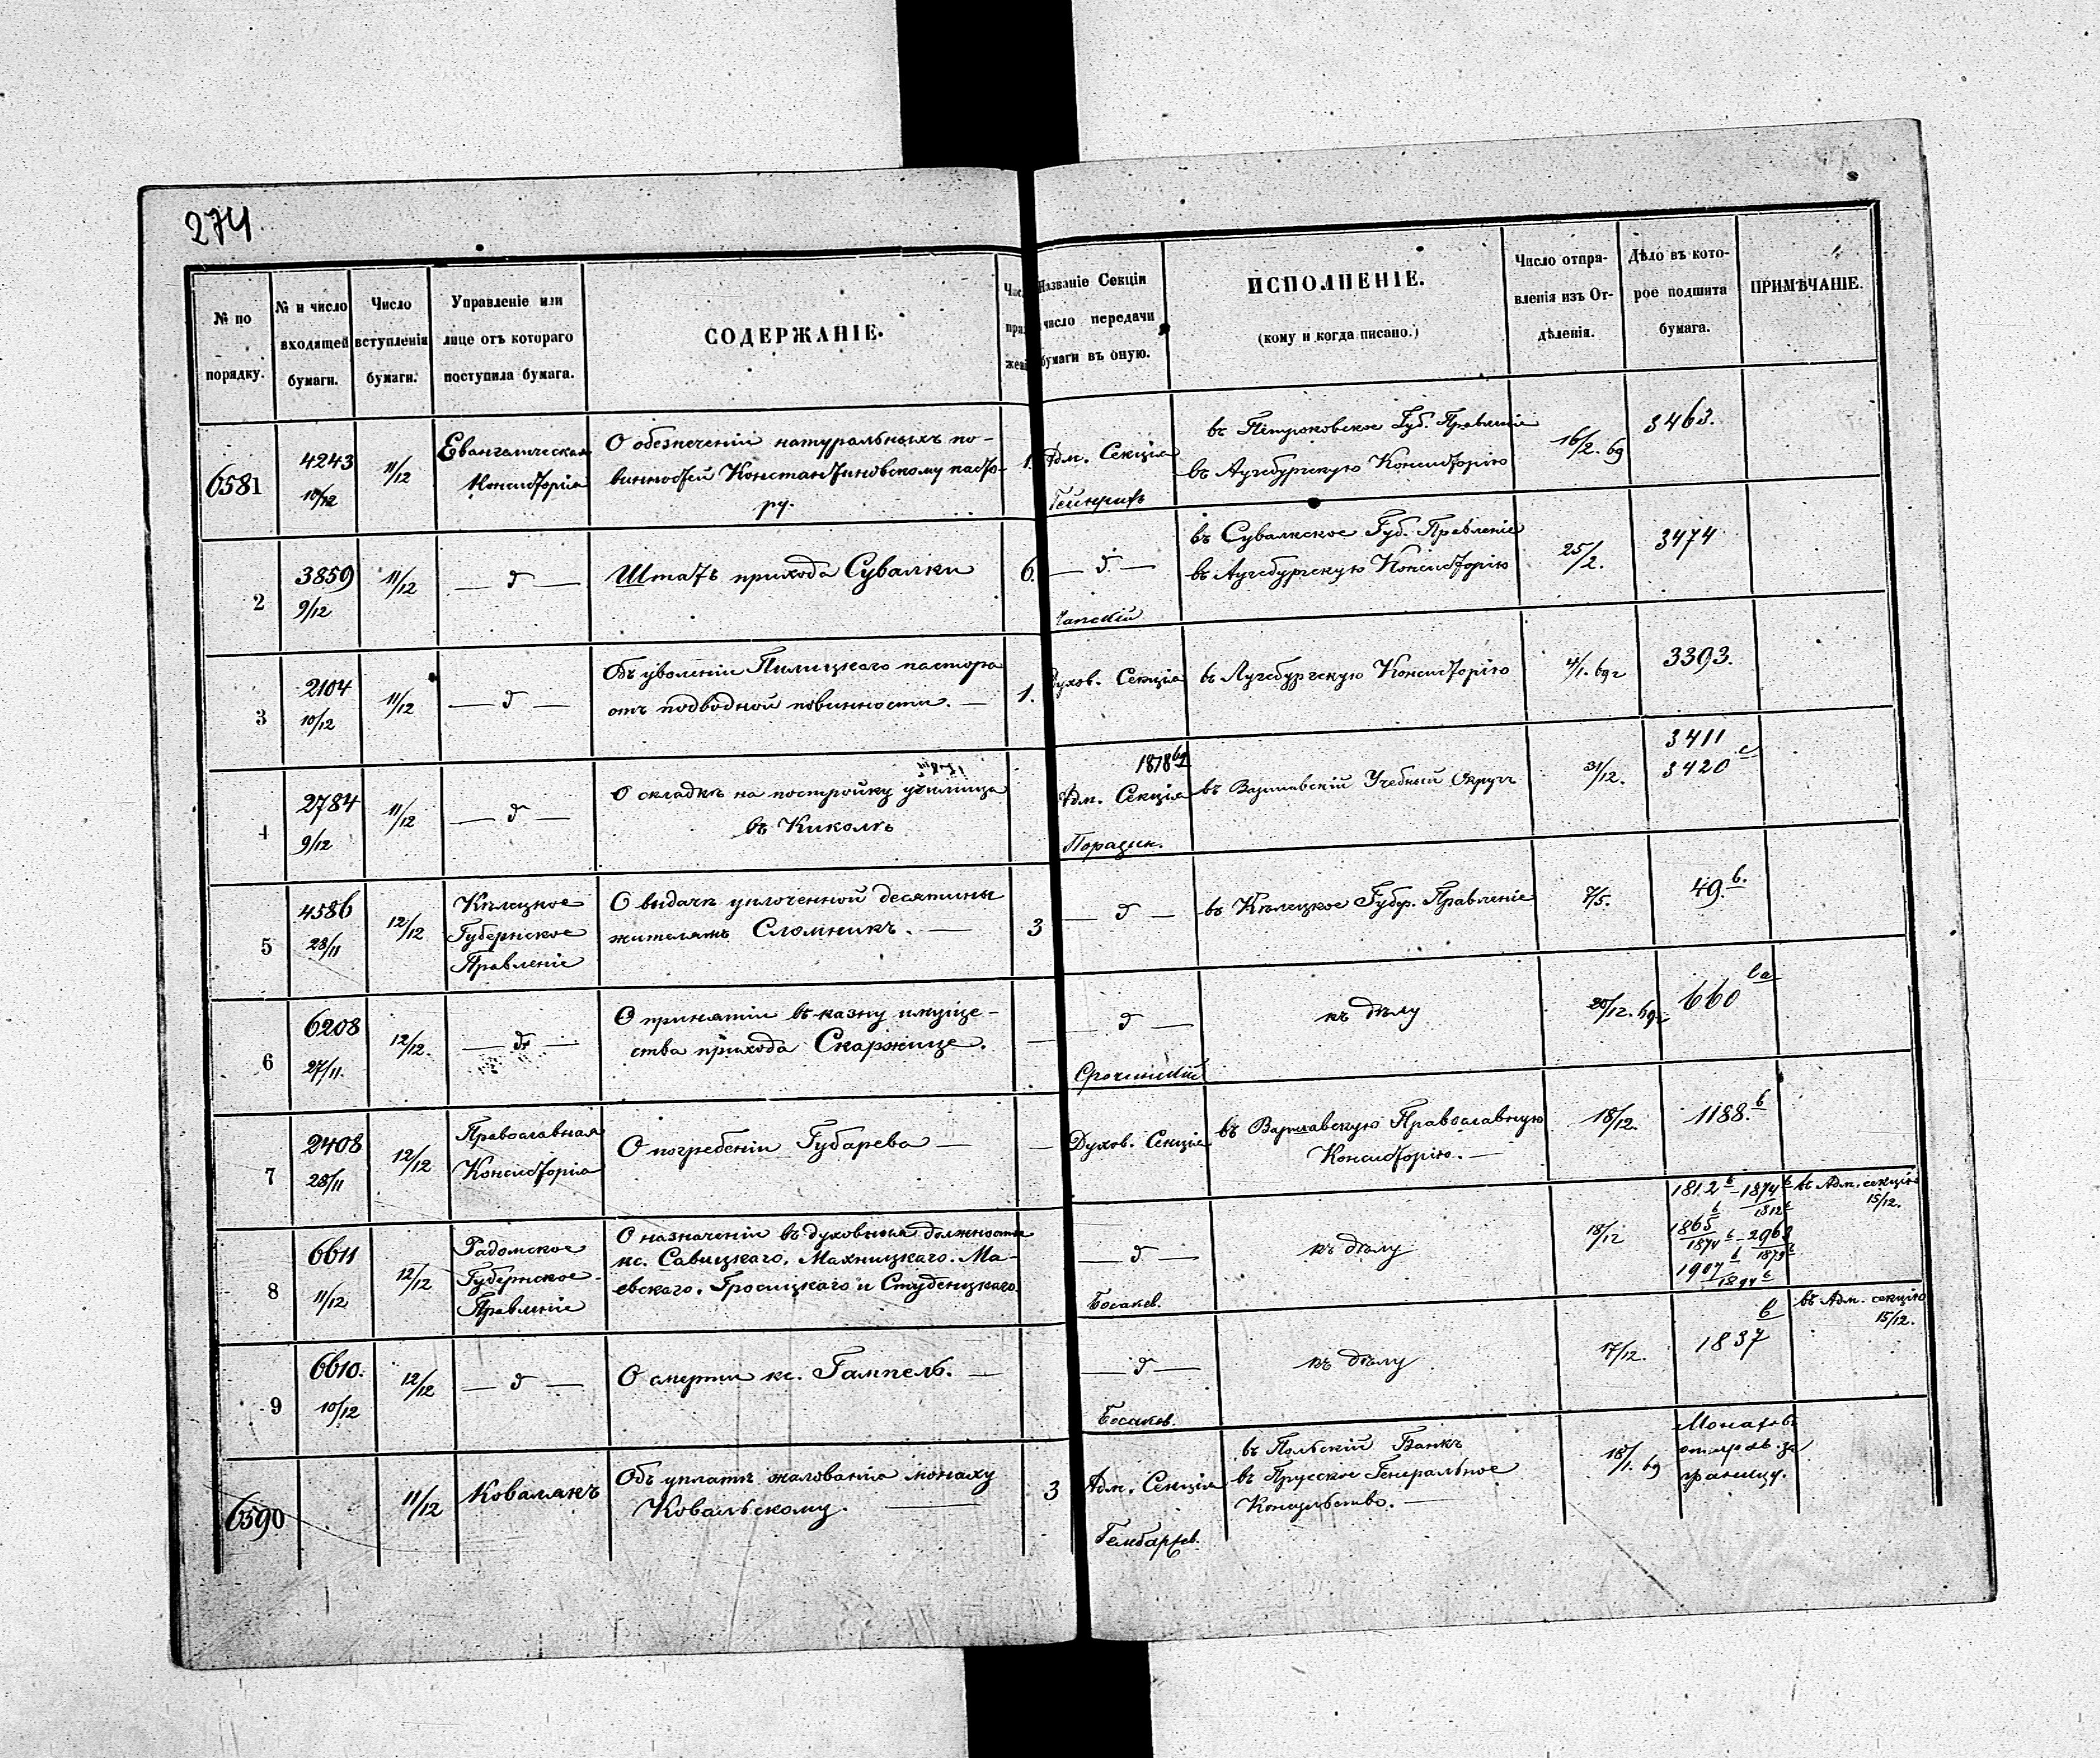 274
№ по порядку.
№ и число входящей бумаги.
Число вступленія бумаги.
Управленіе или лице отъ котораго поступила бумага.
СОДЕРЖАНІЕ.
Названіе Секціи
число передачи
бумаги въ оную.
ИСПОЛНЕНІЕ.
(кому и когда писано.)
Число отпра-
вленія изъ От-
дѣленія.
Дѣло въ кото-
рое подшита
бумага.
ПРИМѢЧАНІЕ.
6581
4243
10/12
11/12
Евангелическая
Консисторія
О обезпеченіи натуральныхъ по-
винностей Константиновскому пасто-
ру.
1.
Адм. Секція
Гейнрихъ
въ Петроковское Губ. Правленіе
въ Аугсбургскую Консисторію
16/2. 69
3463.
2
3859
9/12
11/12
— д —
Штатъ прихода Сувалки
6.
— д —
въ Сувалкское Губ. Правленіе
въ Аугсбургскую Консисторію
25/2.
3474
3
2104
10/12
11/12
— д —
Объ уволеніи Пилицкаго пастора
отъ подводной повинности. —
1.
Духов. Секція
въ Аугсбургскую Консисторію
4/1. 69 г
3393.
4
2784
9/12
11/12
— д —
О складкѣ на постройку училища
въ Киколѣ
1878
Адм. Секція
въ Варшавскій Учебный Округъ
31/12.
3411
3420 с
5
4586
28/11
12/12
Кѣлецкое
Губернское
Правленіе
О выдачѣ уплоченной десятины
жителямъ Сломникъ. —
3
— д —
въ Кѣлецкое Губер. Правленіе
7/5.
49. b.
6
6208
27/11.
12/12.
— д —
О принятіи въ казну имуще-
ства прихода Скаржице.
—
— д —
къ дѣлу
20/12. 69
660
7
2408
28/11
12/12
Православная
Консисторія
О погребеніи Губарева —
—
Духов. Секція
въ Варшавскую Православную
Консисторію. —
18/12.
1188. b
8
6611
11/12
12/12
Радомское
Губернское
Правленіе
О назначеніи въ духовныя должности
кс. Савицкаго, Махницкаго. Ма-
евскаго. Гросицкаго и Студеницкаго.
— д —
Босаков.
къ дѣлу
18/12
1812 b – 1874 b
1865
1907
въ Адм. секцію
15/12.
9
6610.
10/12
12/12
— д —
О смерти кс. Гампель. —
— д —
Босаков.
къ дѣлу
17/12.
b
1837
въ Адм. секцію
15/12.
6590
11/12
Ковалякъ
Объ уплатѣ жалованія монаху
Ковальскому. —
3
Адм. Секція
въ Польскій Банкъ
въ Прусское Генеральное
Консульство. —
18/1. 69
Монаховъ
отправ. за
границу.